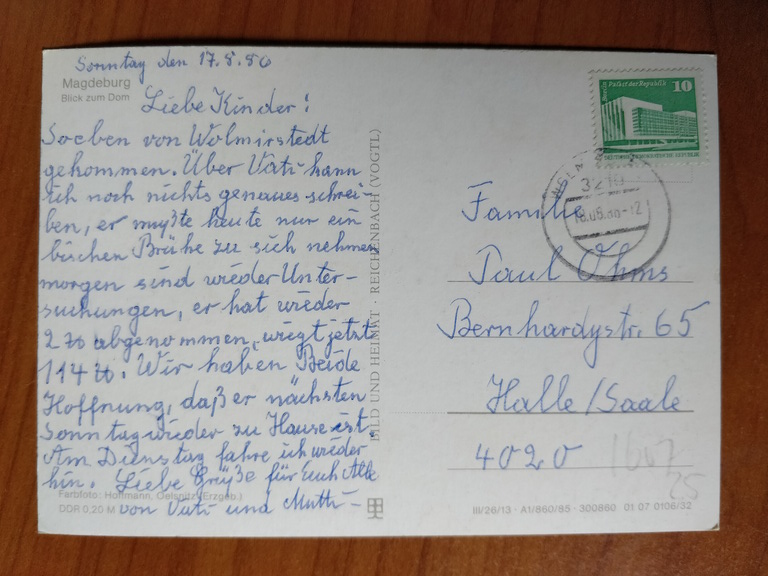 Sonntag den 17.8.86
Magdeburg
Blick zum Dom
Liebe Kinder!
Soeben von Wolmirstedt
gekommen. Über Vati kann
ich noch nichts genaues schrei-
ben, er mußte heute nur ein
bischen Brühe zu sich nehmen
morgen sind wieder Unter-
suchungen, er hat wieder
2 ℔ abgenommen, wiegt jetzt
114 ℔. Wir haben Beide
Hoffnung, daß er nächsten
Sonntag wieder zu Hause ist.
Am Dienstag fahre ich wieder
hin. Liebe Grüße für Euch Alle
von Vati und Mutti-
Farbfoto: Hoffmann, Oelsnitz (Erzgeb.)
DDR 0,20 M
BILD UND HEIMAT · REICHENBACH (VOGTL)
Berlin Palast der Republik 10
DEUTSCHE DEMOKRATISCHE REPUBLIK
3210
18.08.86-12
Familie
Paul Ohms
Bernhardystr. 65
Halle/Saale
4020
1607
25
III/26/13 · A1/860/85 · 300860 01 07 0106/32